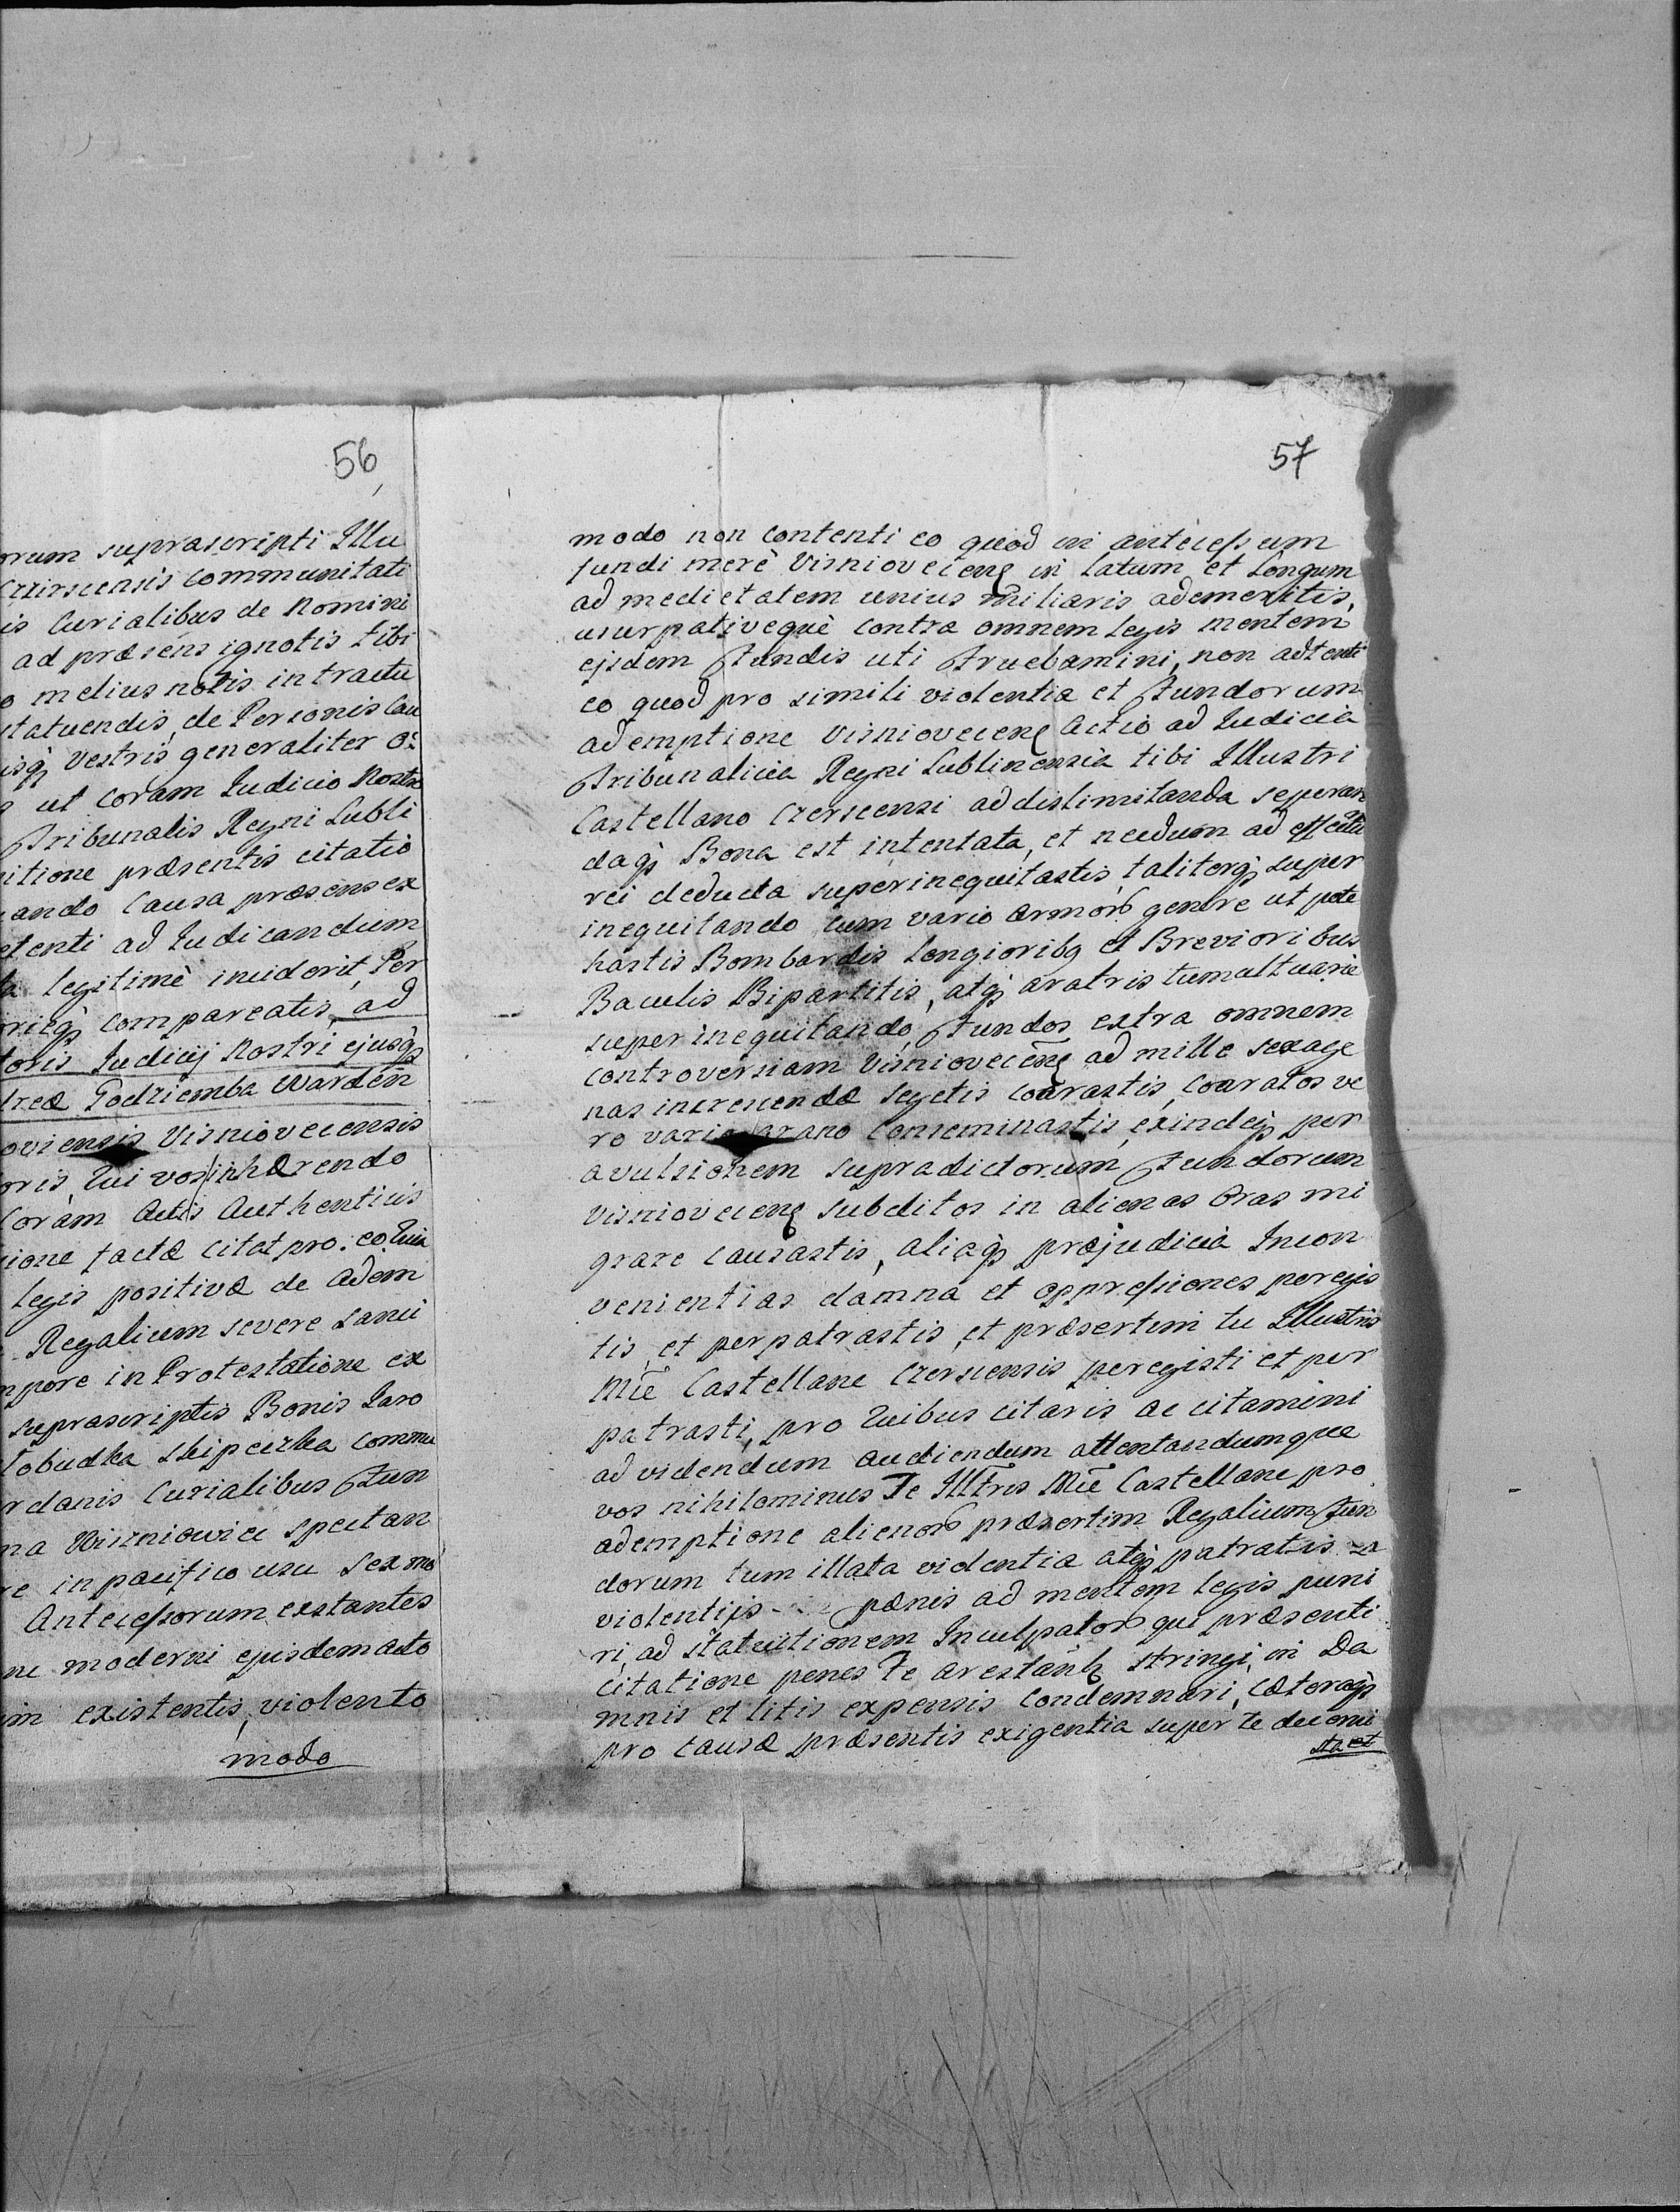 56
orum suprascripti Illu
Czirscensis communitati
is Curialibus de Nomini
ad præsens ignotis tibi
o melius notis in tractu
statuendis, de Personis Cau
isq vestris generaliter
ut coram Iudicio Nostro
Tribunalis Regni Lubli
itione præsentis citatio
ando Causa præsens ex
etenti ad Iudicandum
legitimè inciderit, Per
rieq compareatis, ad
toris Iudicij Nostri ejusq
dreæ Godziemba Warden
oviensis Visniovecensis
oris, Qui vos inhærendo
Coram Actis Authenticis
ione factæ citat pro. eo Quia
legis positivæ de Adem
Regalium severe sanci
mpore in Protestatione ex
suprascriptis Bonis Jaro
Łobudka Skipcizka Commu
rdanis Curialibus Fun
na Wiszniowice spectan
re in pacifico usu sex mo
Antecessorum extantes
ne moderni ejusdem acto
im existentis, violento
modo
57
modo non contenti eo quod in antècessum
fundi merè Visniovecens in Latum et Longum
ad medietatem unius miliaris ademeritis,
usurpativequè contra omnem legis mentem
ejsdem Fundis uti Fruebamini, non adtenti
eo quod pro simili violentia et Fundorum
ademptione Visniovecens Actio ad Iudicia
Tribunalicia Regni Lublinensia tibi Illustri
Castellano Czerscensi addislimitanda seperan
daq Bona est intentata, et necdum ad effectu
rei deducta superinequitastis, taliterq super
inequitando cum vario Armor genere ut pote
hastis Bombardis Longiorib et Brevioribus
Baculis Bipartitis, atq aratris tumultuarie
superinequitando, Fundos extra omnem
controversiam Visniovecens ad mille sexage
nas increscendæ segetis coarastis, coaratos ve
ro vario grano Conseminastis, exindeq per
avulsionem supradictorum Fundorum
Visniovecens subditos in alienas Oras mi
grare causastis, aliaq præjudicia Incon
venientias damna et oppressiones peregis
tis, et perpatrastis, et præsertim tu Illustris
Mce Castellane Czerscensis peregisti et per
patrasti, pro Quibus citaris ac citamini
ad videndum audiendum attentandumque
vos nihilominus Te Illtris Mce Castellane pro
ademptione alienor præsertim Regalium Fun
dorum tum illata violentia atq patratis
violentijs pænis ad mentem legis puni
ri, ad statuitionem Inculpator qui præsenti
citatione penes Te arestant stringi, in Da
mnis et litis expensis Condemnari, Cæteraq
pro causæ præsentis exigentia super te decerni
sta et